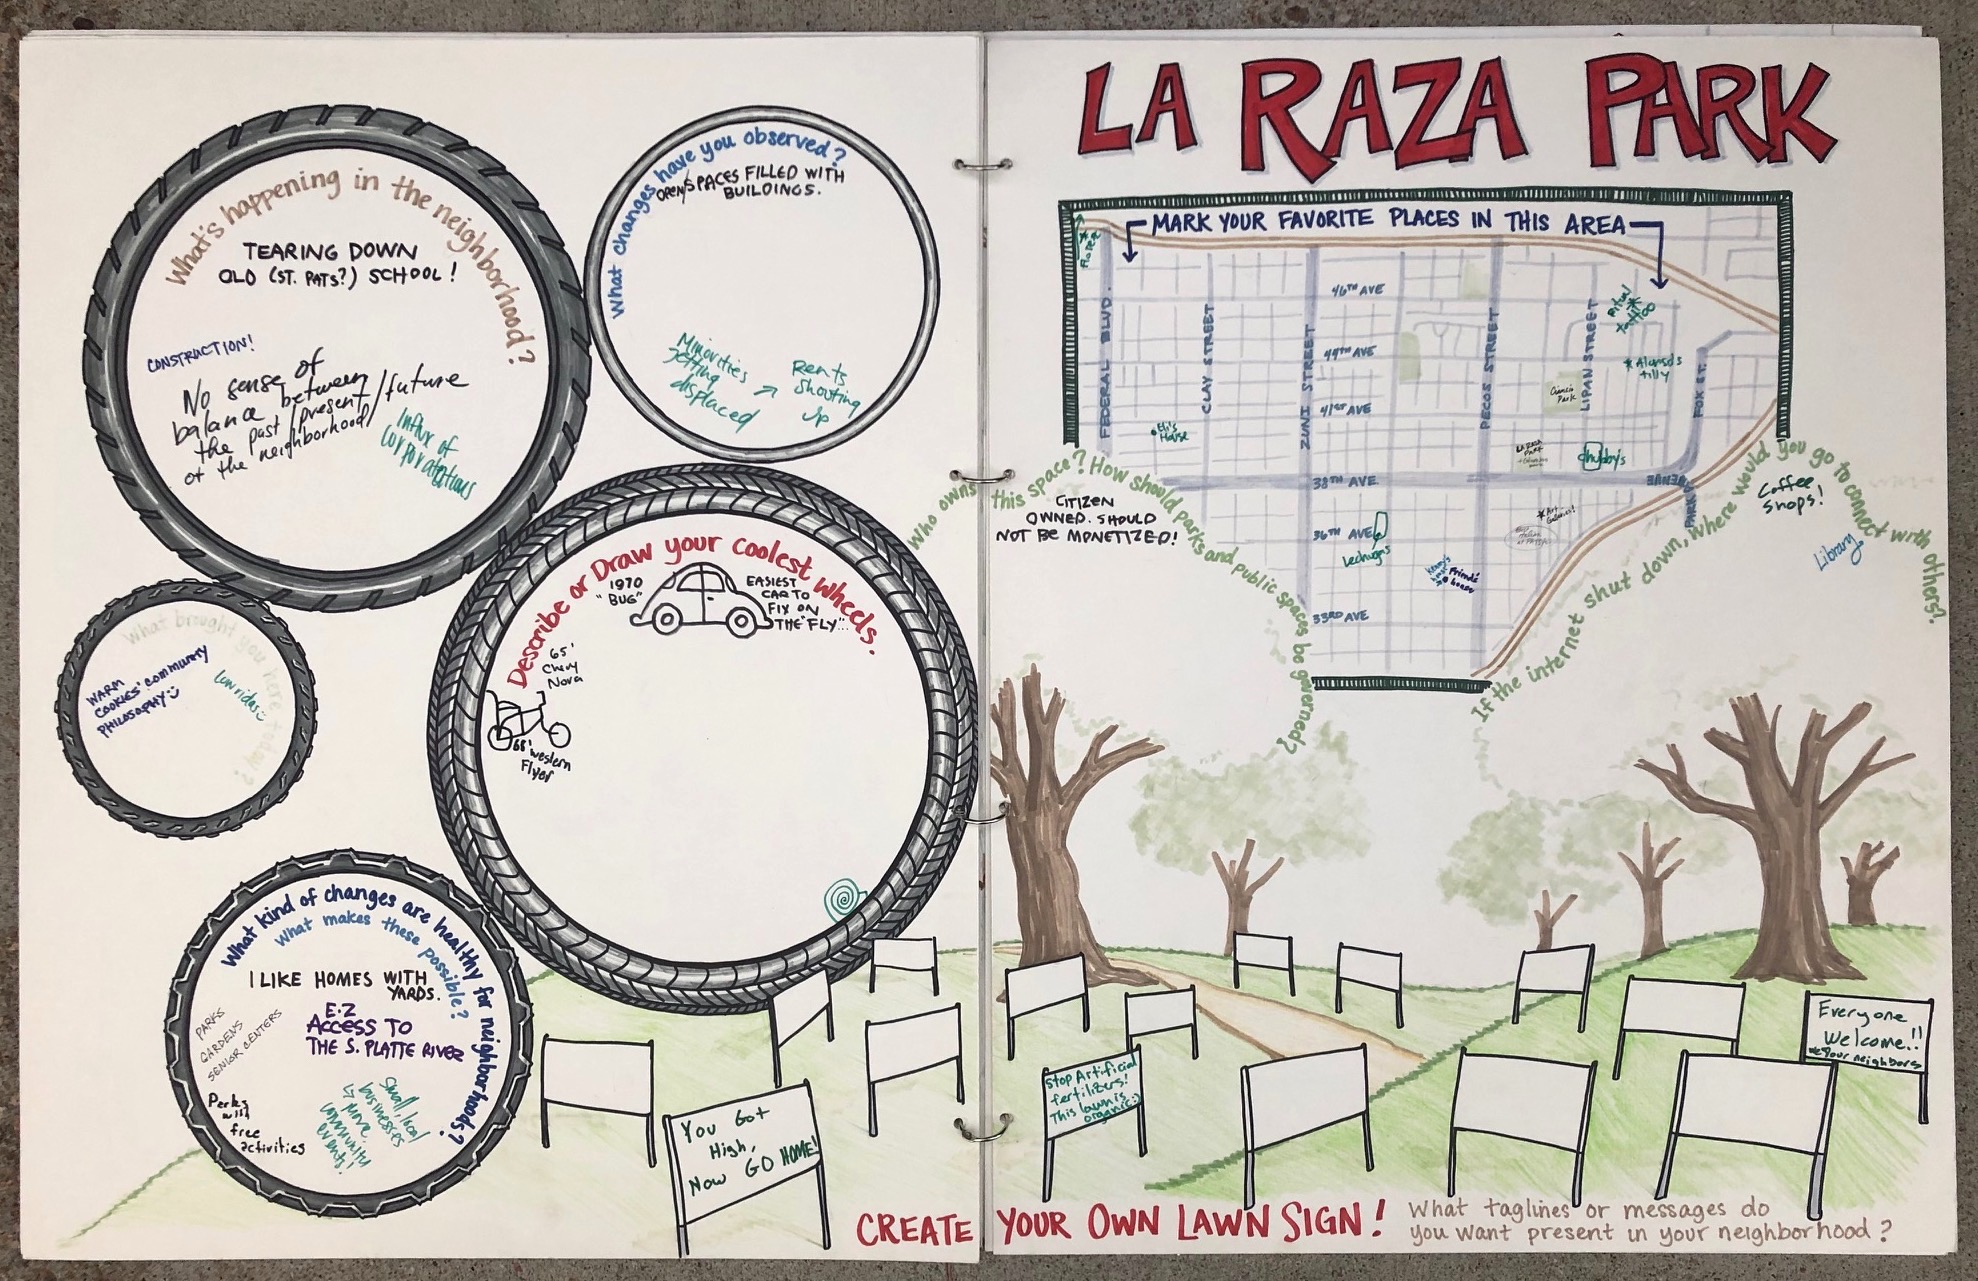 What's happening in the neighborhood?
TEARING DOWN
OLD (ST. PATS?) SCHOOL!
CONSTRUCTION!
No sense of
balance between
the past/present/future
of the neighborhood
Influx of
corporations
What changes have you observed?
OPEN SPACES FILLED WITH
BUILDINGS.
Minorities
getting
displaced
Rents
shooting
up
What brought you here today?
WARM
COOKIES' COMMUNITY
PHILOSOPHY
Lowrides
Describe or Draw your coolest wheels.
1970
"BUG"
EASIEST
CAR TO
FIX ON
THE "FLY"...
65'
Chevy
Nova
68' Western
Flyer
What kind of changes are healthy for neighborhoods?
What makes these possible?
I LIKE HOMES WITH
YARDS.
E-Z
ACCESS TO
THE S. PLATTE RIVER
PARKS
GARDENS
SENIOR CENTERS
Perks
with
free
activities
Small, local
businesses
more
community
events!
You Got
High,
Now GO HOME!
LA RAZA PARK
MARK YOUR FAVORITE PLACES IN THIS AREA
FEDERAL BLVD.
CLAY STREET
ZUNI STREET
PECOS STREET
LIPAN STREET
FOX ST.
46TH AVE
44TH AVE
41ST AVE
38TH AVE
36TH AVE
33RD AVE
PARK AVENUE
Ritual
tattoo
Ciancio
Park
LA RAZA
PARK
Eli's
House
Chubby's
Lechugas
Art
Galleries!
Friends'
house
Who owns this space? How should parks and public spaces be governed?
CITIZEN
OWNED. SHOULD
NOT BE MONETIZED!
If the internet shut down, where would you go to connect with others?
Coffee
Shops!
Library
Stop Artificial
fertilizers!
This lawn is
organic:)
Everyone
Welcome!!
Your neighbors
CREATE YOUR OWN LAWN SIGN!
What taglines or messages do
you want present in your neighborhood?